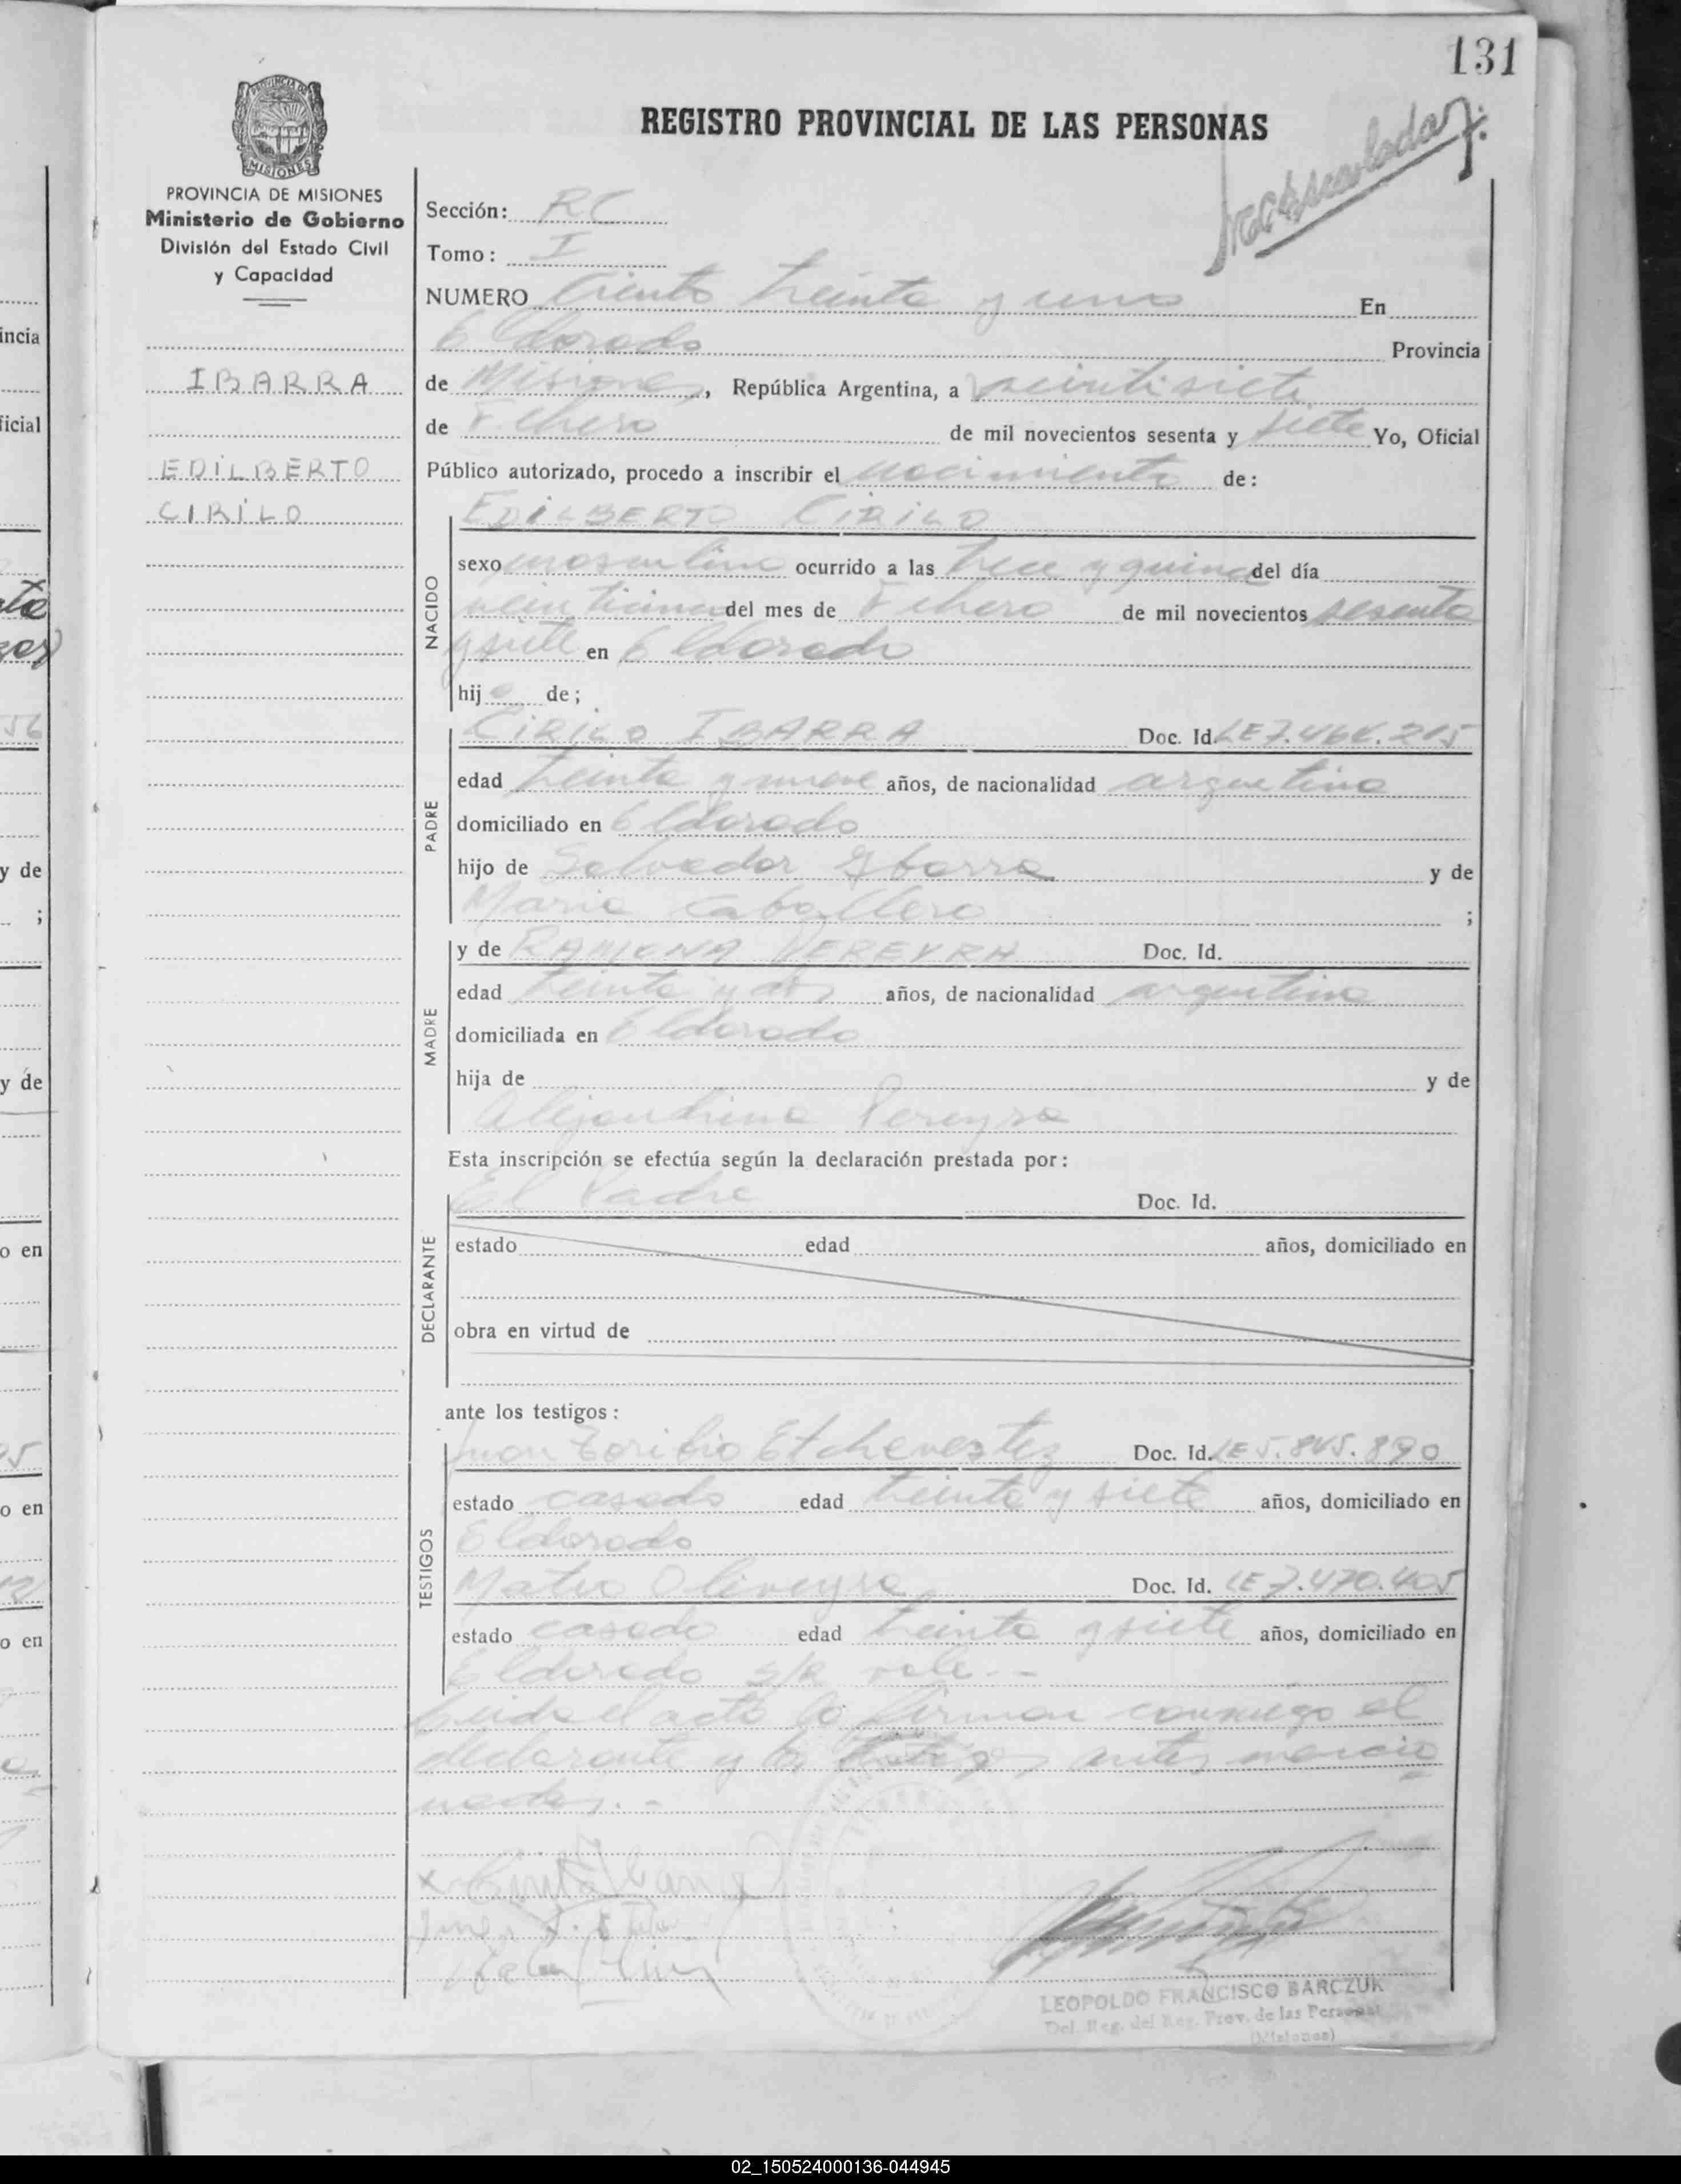 131
REGISTRO PROVINCIAL DE LAS PERSONAS
MISIONES
PROVINCIA DE MISIONES
Ministerio de Gobierno
División del Estado Civil
y Capacidad
IBARRA
EDILBERTO
CIRILO
Sección: RC
Tomo: I
NUMERO Ciento treinta y uno En
Eldorado Provincia
de Misiones, República Argentina, a veintisiete
de Febrero de mil novecientos sesenta y siete Yo, Oficial
Público autorizado, procedo a inscribir el nacimiento de:
NACIDO
EDILBERTO CIRILO
sexo masculino ocurrido a las trece y quince del día
veinticinco del mes de Febrero de mil novecientos sesenta
y siete en Eldorado
hijo de;
PADRE
CIRILO IBARRA Doc. Id. LE
edad treinta y nueve años, de nacionalidad argentina
domiciliado en Eldorado
hijo de Salvador Ibarra y de
Maria Caballero ;
MADRE
y de RAMONA PEREYRA Doc. Id.
edad treinta y dos años, de nacionalidad argentina
domiciliada en Eldorado
hija de y de
Alejandrina Pereyra
Esta inscripción se efectúa según la declaración prestada por:
DECLARANTE
El Padre Doc. Id.
estado edad años, domiciliado en
obra en virtud de
ante los testigos:
TESTIGOS
Juan Toribio Doc. Id. LE
estado casado edad treinta y siete años, domiciliado en
Eldorado
Mateo Oliveyra Doc. Id. LE 7.470.405
estado casado edad treinta y siete años, domiciliado en
Eldorado s/R vale.--
Leida el acta lo firman conmigo el
declarante y los testigos antes mencio
nados.-
LEOPOLDO FRANCISCO BARCZUK
Del. Reg. del Reg. Prov. de las Personas
(Misiones)
02_150524000136-044945